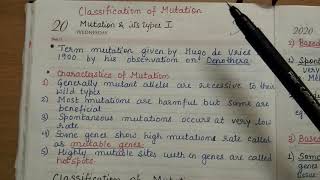 Classification of Mutation
20 Mutation & its types I
WEDNESDAY
• Term mutation given by Hugo de Vries
1900 by his observation on Oenothera
• Characterstics of Mutation
1) Generally mutant alleles are recessive to their
wild types
2) Most mutations are harmful but some are
beneficial
3) Spontaneous mutations occurs at very low
rate
4) Some genes show high mutations rate called
as mutable genes
5) Highly mutable sites within genes are called
hotspots.
Classification of Mutation
2020
2) Based
Spont
very
Mo
Indu
agen
3) Based
1) Som